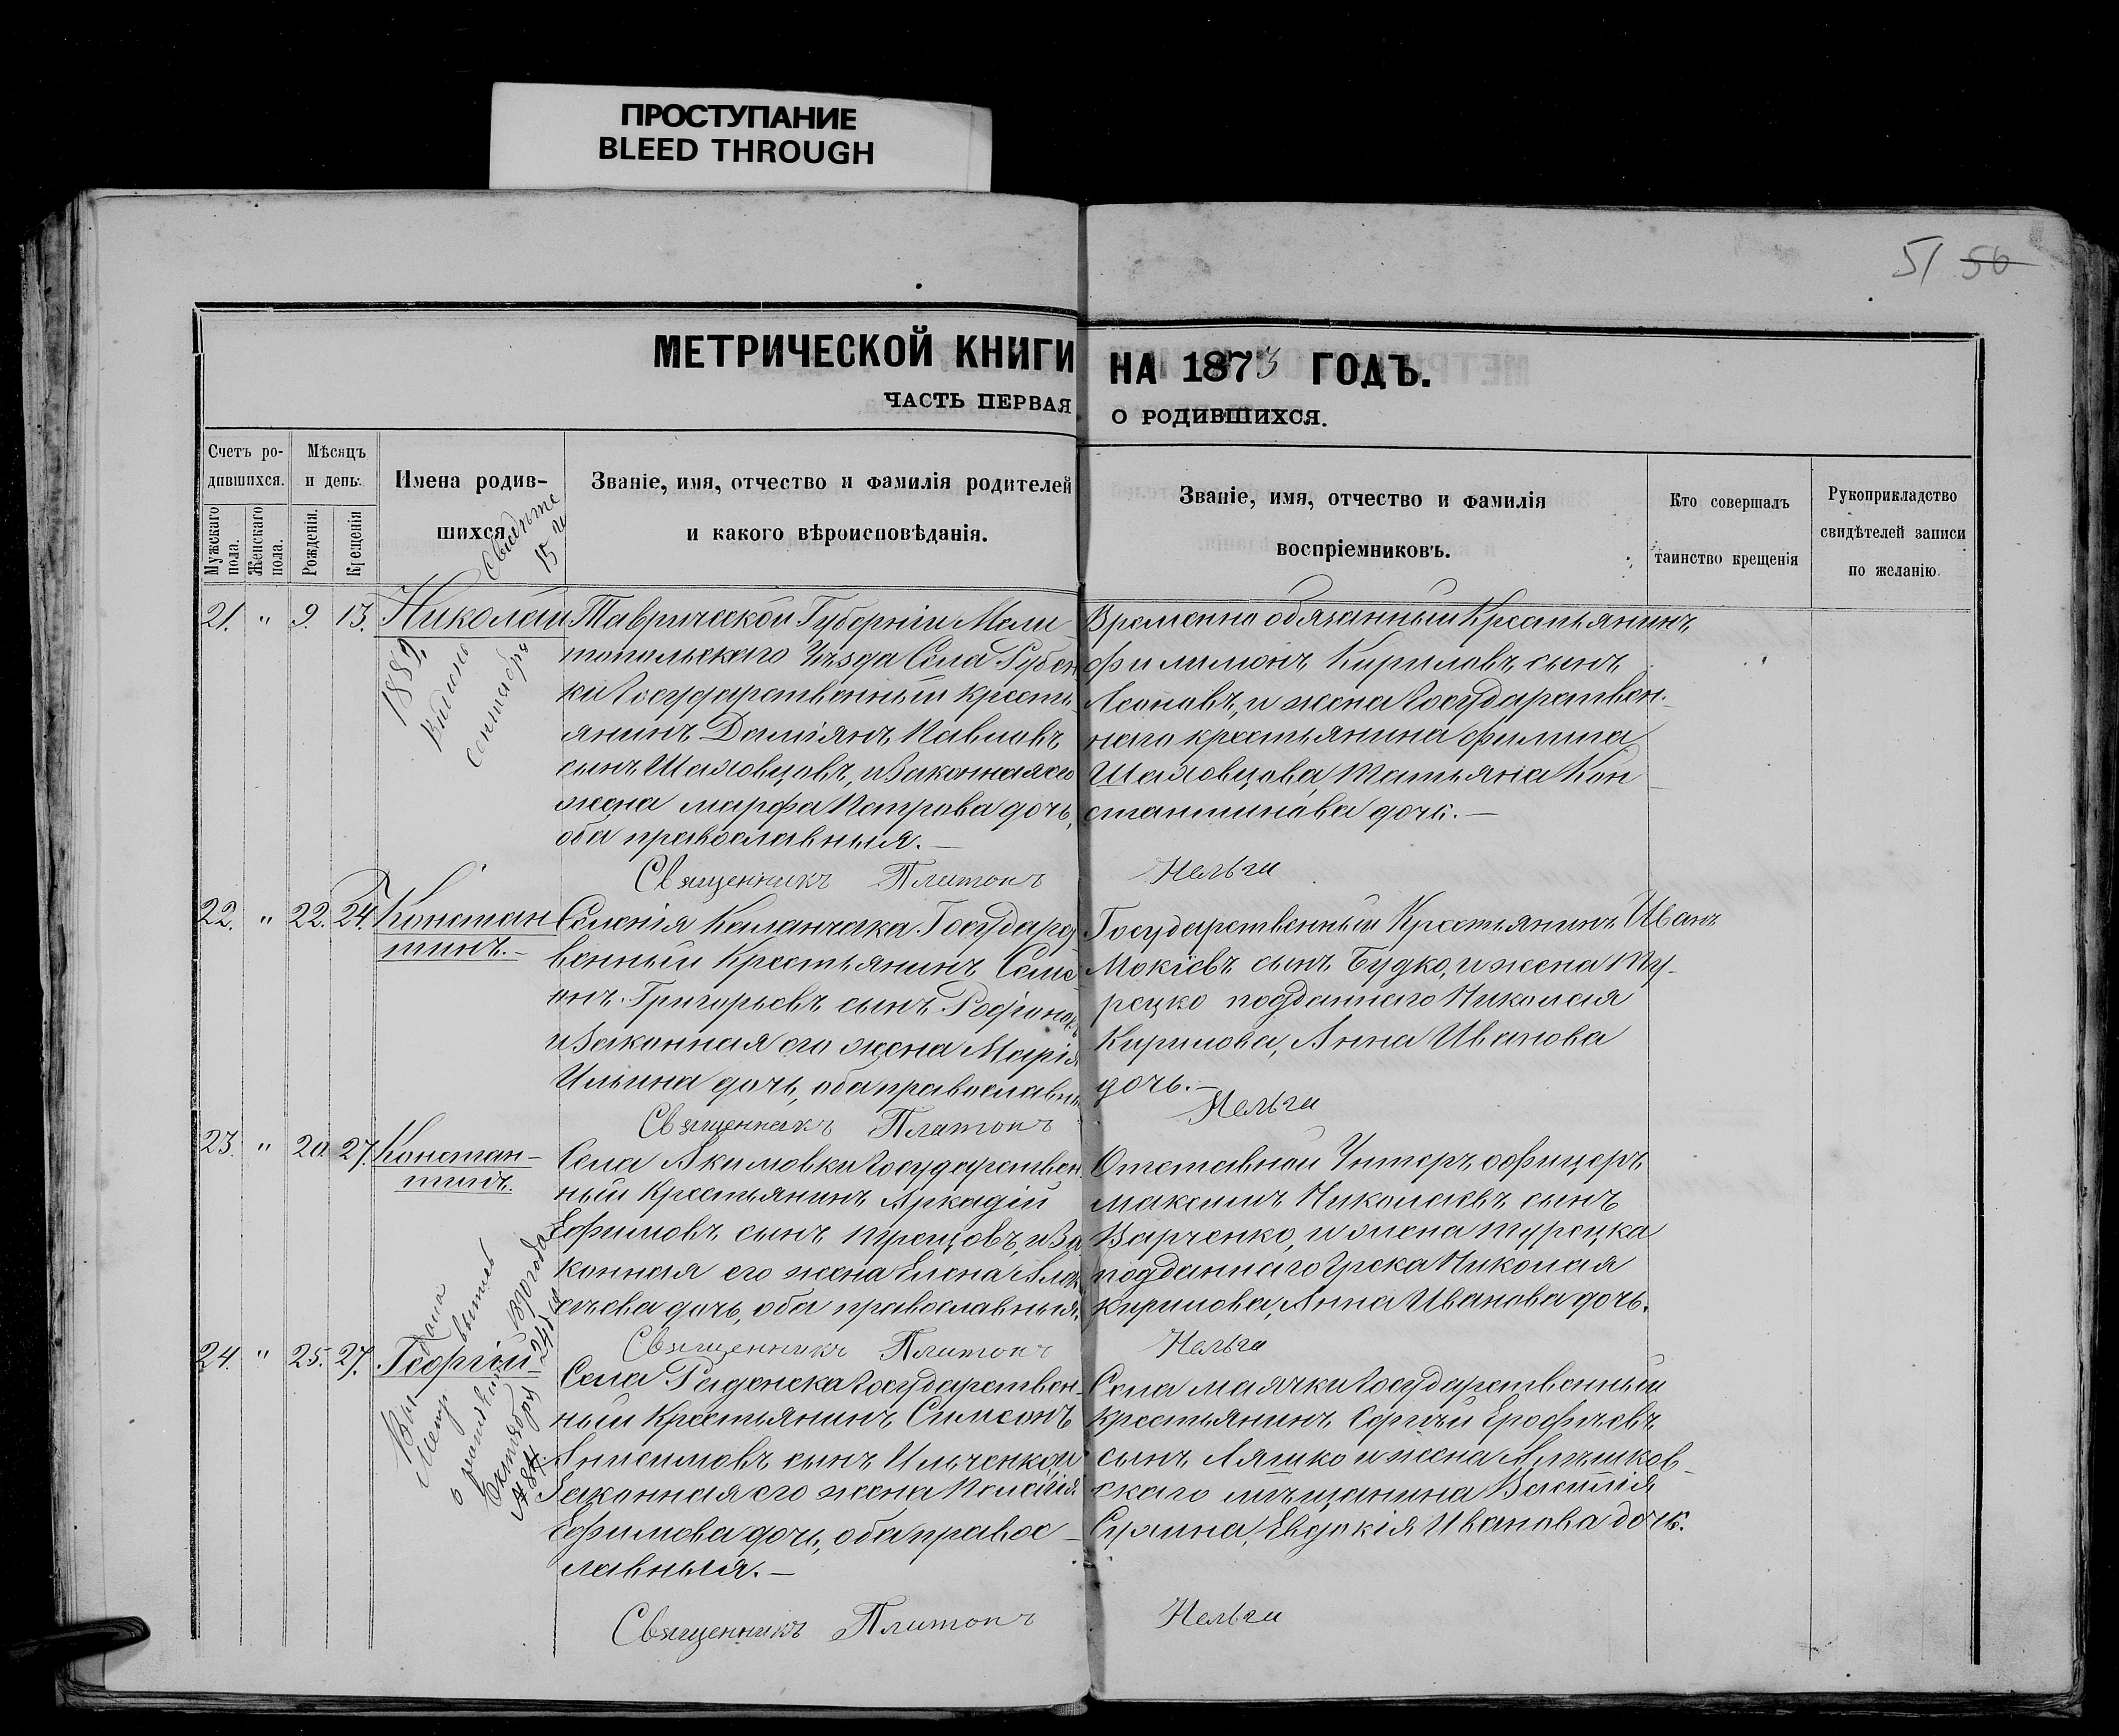 ПРОСТУПАНИЕ
BLEED THROUGH
51 50
МЕТРИЧЕСКОЙ КНИГИ НА 1873 ГОДЪ.
ЧАСТЬ ПЕРВАЯ О РОДИВШИХСЯ.
Счетъ родившихся.
Мужскаго пола.
Женскаго пола.
Мѣсяцъ и день.
Рожденія.
Крещенія
Имена родившихся
Званіе, имя, отчество и фамилія родителей
и какого вѣроисповѣданія.
Званіе, имя, отчество и фамилія
воспріемниковъ.
Кто совершалъ
таинство крещенія
Рукоприкладство
свидѣтелей записи
по желанію.
21. " 9. 13. Николай
1889
сентября
15
Таврической Губерніи Мели
топольскаго Уѣзда Села Рубан
ки Государственный крестья
янинъ Даміянъ Павловъ
сынъ Шаловцовъ, и Законная его
жена Марфа Петрова дочь,
оба православныя.—
Временно обязанный Крестьянинъ
Филимонъ Кириловъ сынъ
Леоновъ, и жена Государствен-
наго крестьянина Филипа
Шаловцова, Татьяна Кон
стантинова дочь.—
Священникъ Платонъ Нельга
22. " 22. 24. Констан
тинъ.—
Селенія Каланчака Государст
венный Крестьянинъ Семе
онъ Григорьевъ сынъ
и Законная его жена Марія
Ильина дочь, оба православны
Государственный Крестьянинъ Иванъ
Мокіевъ сынъ Будко, и жена Ту-
рецко подданнаго Николая
Кирилова, Анна Иванова
дочь.—
Священникъ Платонъ Нельга
23. " 20. 27. Констан-
тинъ.
Села Акимовки Государствен
ный Крестьянинъ Аркадій
Ефимовъ сынъ и За
конная его жена Елена Алек
сѣева дочь, оба православныя.
Отставной Унтеръ офицеръ
Максимъ Николаевъ сынъ
Харченко, и жена турецка
подданнаго Грека Николая
Кирилова, Анна Иванова дочь.
Священникъ Платонъ Нельга
24. " 25. 27. Георгій
1890 года
Октября 24 дня
№ 84.
Села Раденска Государствен-
ный Крестьянинъ Симеонъ
Анисимовъ сынъ Ильченко, и
Законная его жена Пелагія
Ефимова дочь, оба правос-
лавныя.—
Села Маячки Государственный
крестьянинъ Сергѣй Ерофѣевъ
сынъ Ляшко и жена Алешков-
скаго мѣщанина Василія
Евдокія Иванова дочь.
Священникъ Платонъ Нельга